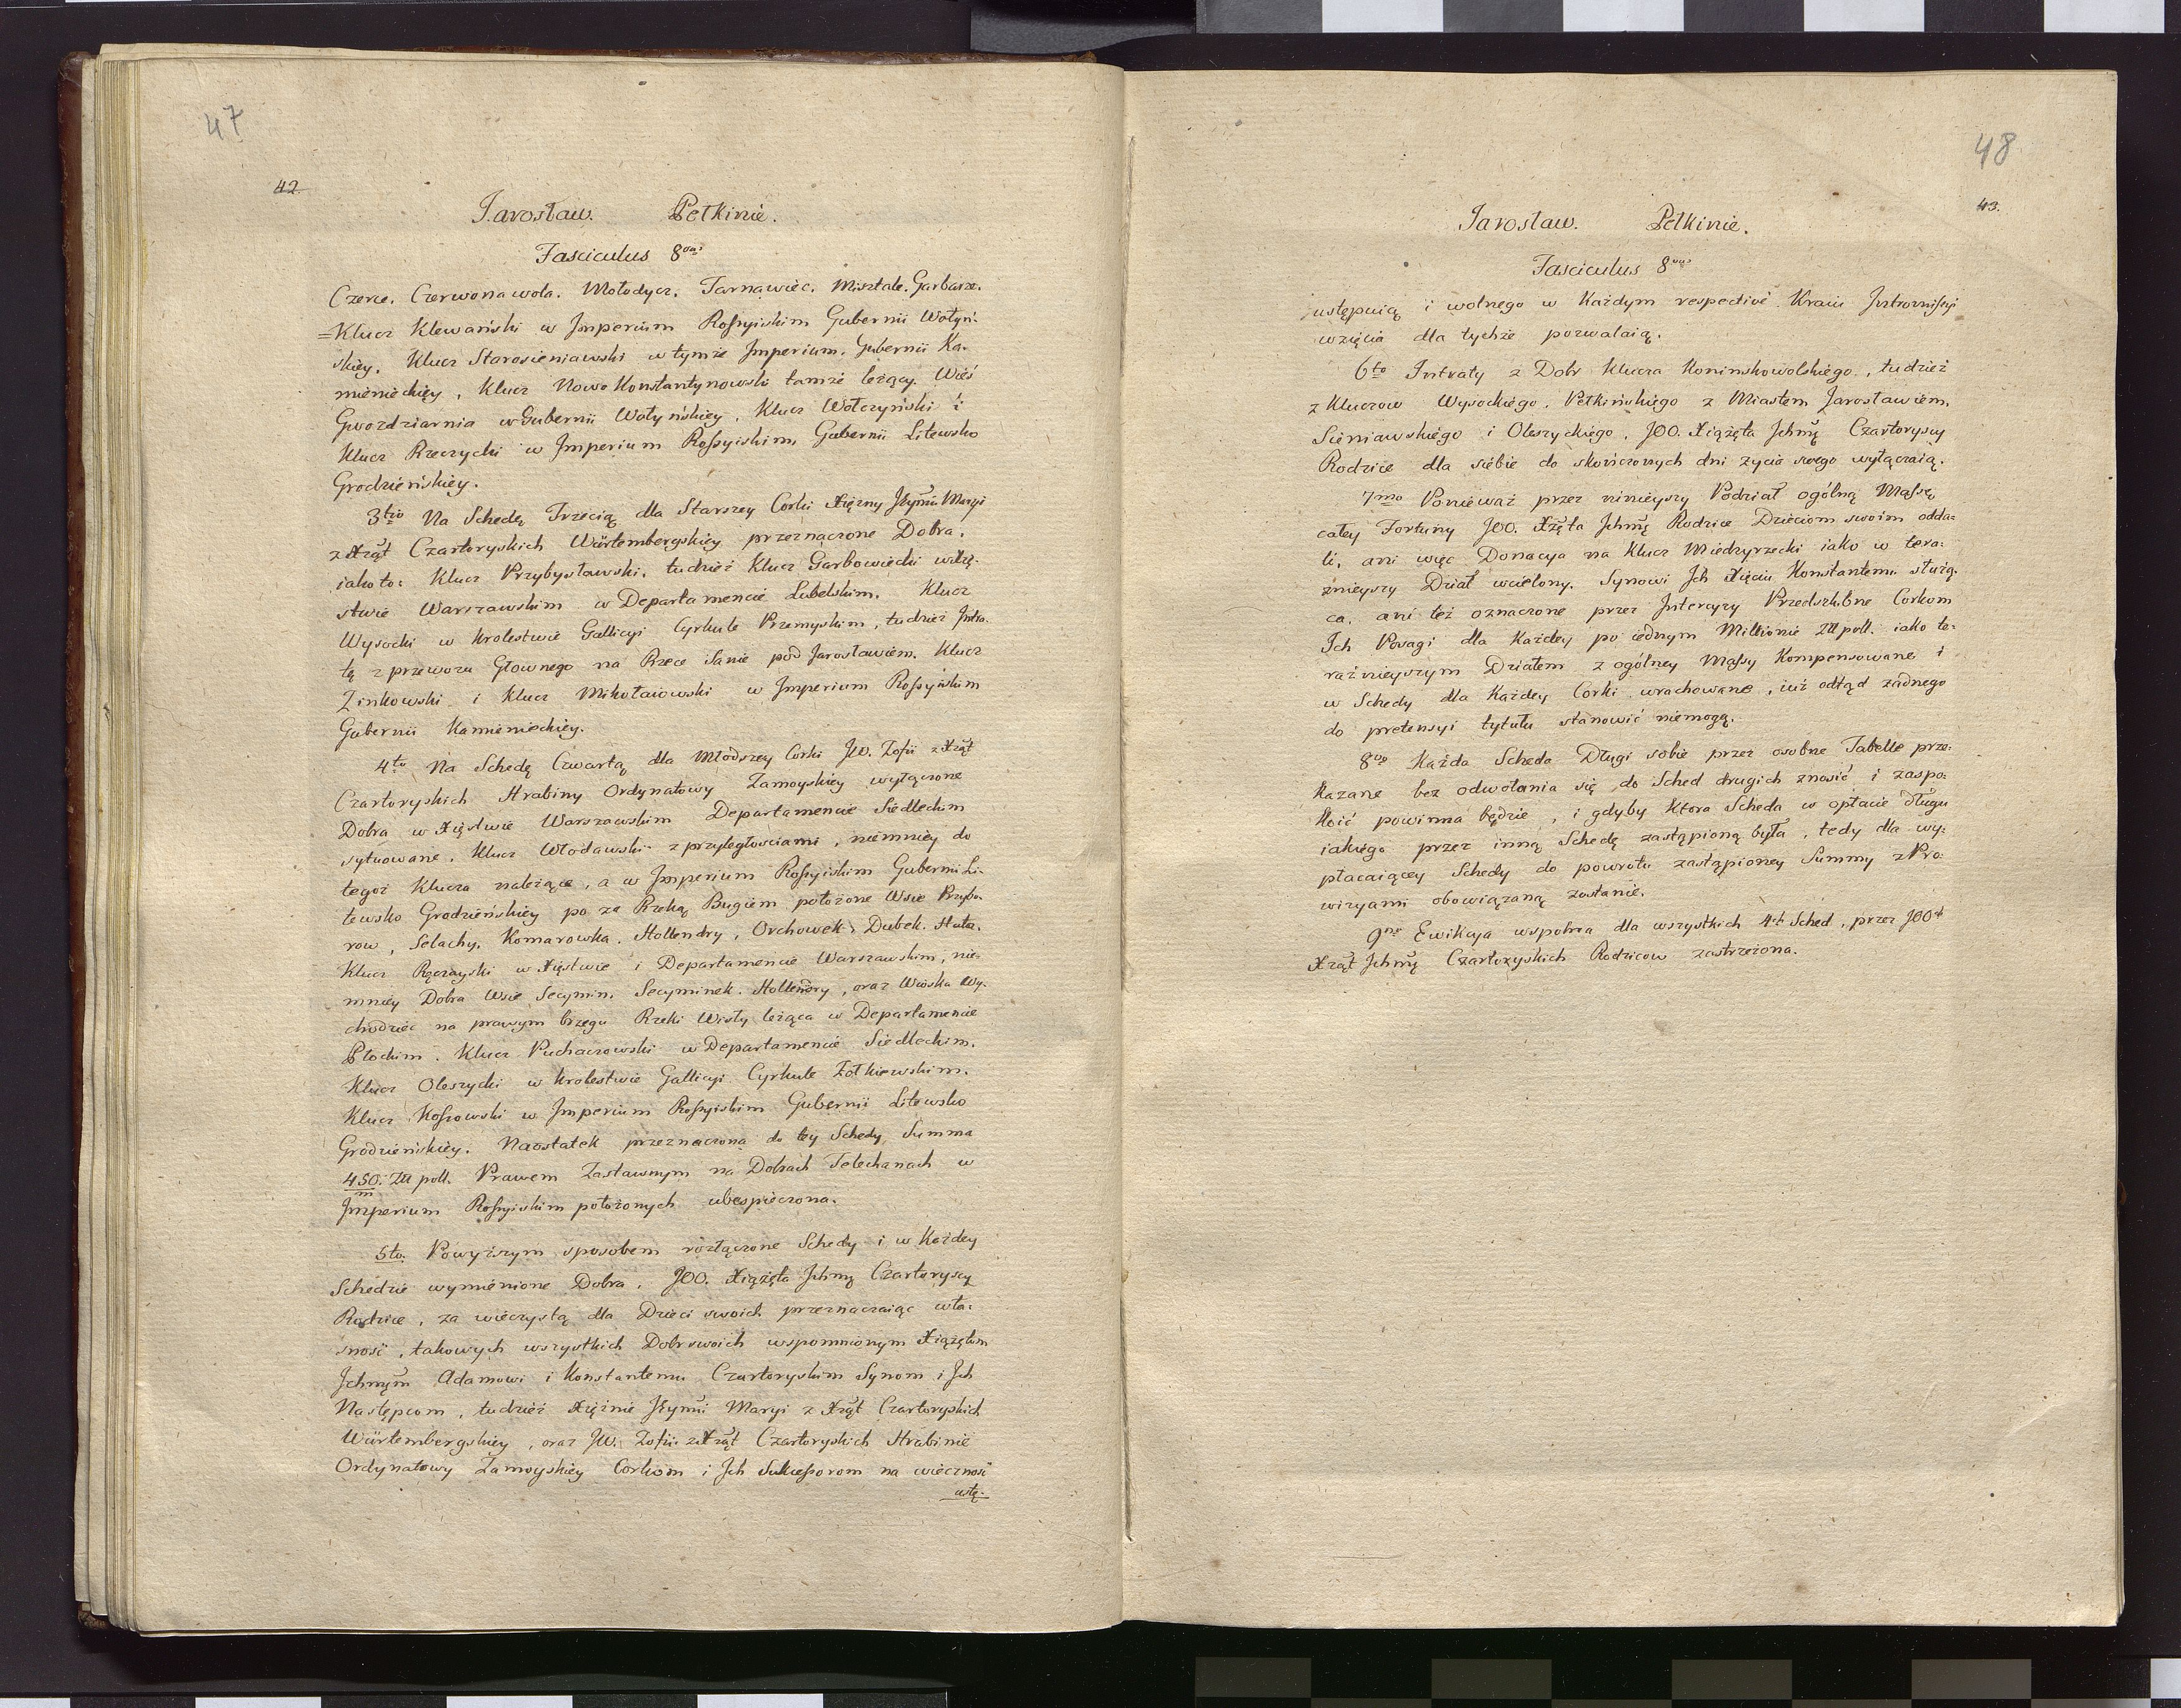 47
42.
Jarosław. Pełkinie.
Fasciculus 8vus
Czerce. Czerwona wola. Mołodycz. Tarnawiec. Misztale. Garbarze.
=Klucz Klewański w Imperium Rossyiskim Gubernii Wołyń-
skiey. Klucz Starosieniawski w tymże Imperium. Gubernii Ka-
mienieckiey, Klucz Nowo Konstantynowski tamże leżący. Wieś
Gwozdziarnia w Gubernii Wołyńskiey. Klucz Wołczyński i
Klucz Rzeczycki w Imperium Rossyiskim, Gubernii Litewsko
Grodzieńskiey.
3tio Na Schedę Trzecią dla Starszey Corki Xiężny JEymći Maryi
z Xząt Czartoryskich Würtembergskiey przeznaczone Dobra.
iako to: Klucz Przybysławski, tudzież Klucz Garbowiecki w Xię-
stwie Warszawskim w Departamencie Lubelskim. Klucz
Wysocki w Krolestwie Gallicyi Cyrkule Przemyskim, tudzież Intra-
tę z przewozu Głownego na Rzece Sanie pod Jarosławiem. Klucz
Zinkowski i Klucz Mikołaiowski w Imperium Rossyiskim
Gubernii Kamienieckiey.
4to Na Schedę Czwartą dla Młodszey Corki JW. Zofii z Xząt
Czartoryskich Hrabiny Ordynatowy Zamoyskiey wyłączone
Dobra w Xięstwie Warszawskim Departamencie Siedleckim
sytuowane. Klucz Włodawski z przyległosciami, niemniey do
tegoż Klucza należące, a w Imperium Rossyiskim Gubernii Li-
tewsko Grodzieńskiey po za Rzeką Bugiem położone Wsie Przybo-
row, Selachy. Komarowka. Hollendry, Orchowek. Dubek. Huta.
Klucz Ręczayski w Xięstwie i Departamencie Warszawskim, nie-
mniey Dobra Wsie Secymin. Secyminek. Hollendry, oraz Wioska Wy-
chodziec na prawym brzegu Rzeki Wisły leżąca w Departamencie
Płockim. Klucz Puchaczowski w Departamencie Siedleckim.
Klucz Oleszycki w Krolestwie Gallicyi Cyrkule Żołkiewskim.
Klucz Kossowski w Imperium Rossyiskim Gubernii Litewsko
Grodzieńskiey. Naostatek przeznaczona do tey Schedy Summa
450. Zll poll. Prawem Zastawnym na Dobrach Telechanach w
m
Imperium Rossyiskim położonych ubespieczona.
5to. Powyższym sposobem rozłączone Schedy i w Każdey
Schedzie wymienione Dobra. JOO. Xiążęta Jchmę Czartoryscy
Rodzice, za wieczystą dla Dzieci swoich przeznaczaiąc wła-
sność, takowych wszystkich Dobr swoich wspomnionym Xiążętom
Jchmęm Adamowi i Konstantemu Czartoryskim Synom i Jch
Następcom, tudzież Xiężnie JEymći Maryi z Xząt Czartoryskich
Würtembergskiey, oraz JW. Zofii z Xząt Czartoryskich Hrabinie
Ordynatowy Zamoyskiey Corkom i Jch Sukcessorom na wieczność
ustę-
48
43.
Jarosław. Pełkinie.
Fasciculus 8vus
ustępuią i wolnego w Każdym respectivè Kraiu
wzięcia dla tychże pozwalaią.
6to Intraty z Dobr Klucza Koninskowolskiego, tudzież
z Kluczow Wysockiego. Pełkińskiego z Miastem Jarosławiem.
Sieniawskiego i Oleszyckiego, JOO. Xiążęta Jchmę Czartoryscy
Rodzice dla siebie do skończonych dni życia swego wyłączaią.
7mo Ponieważ przez ninieyszy Podział ogólną Massę
całey Fortuny JOO. Xzęta Jchmę Rodzice Dzieciom swoim odda-
li, ani więc Donacya na Klucz Miedzyrzecki iako w tera-
znieyszy Dział wcielony, Synowi Jch Xięciu Konstantemu służą-
ca, ani też oznaczone przez Intercyzy Przedszlubne Corkom
Jch Posagi dla Każdey po iednym Millionie Zll poll. iako te-
raźnieyszym Działem z ogólney Massy Kompensowane i
w Schedy dla Każdey Corki wrachowane, iuż odtąd żadnego
do pretensyi tytułu stanowić niemogą.
8vo Każda Scheda Długi sobie przez osobne Tabelle prze-
kazane bez odwołania się do Sched drugich znosić i zaspo-
koić powinna będzie, i gdyby Ktora Scheda w opłacie Długu
iakiego przez inną Schedę zastąpioną była, tedy dla wy-
płacaiącey Schedy do powrotu zastąpioney Summy z Pro-
wizyami obowiązaną zostanie.
9no Ewikcya wspolna dla wszystkich 4ch Sched, przez JOOch
Xząt Jchmę Czartoryskich Rodzicow zastrzeżona.